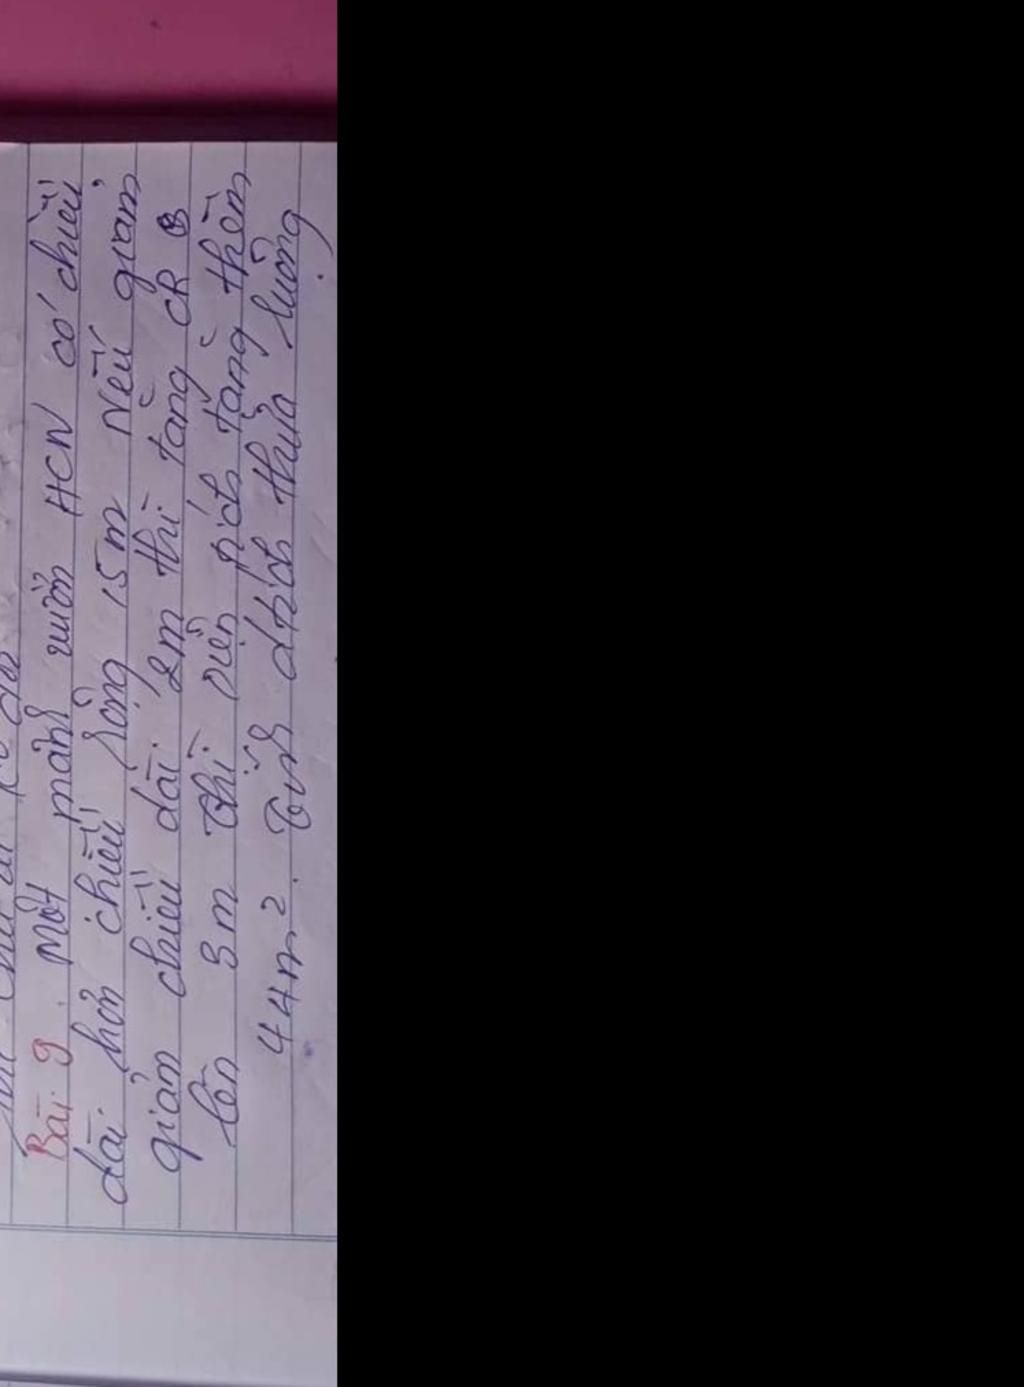 Bài 9. Một mảnh vườn HCN có chiều
dài hơn chiều rộng 15m Nếu giảm
giảm chiều dài 2m thì tăng CR
lên 3m thì diện tích tăng thêm
44m2. Tính dtích thửa luông